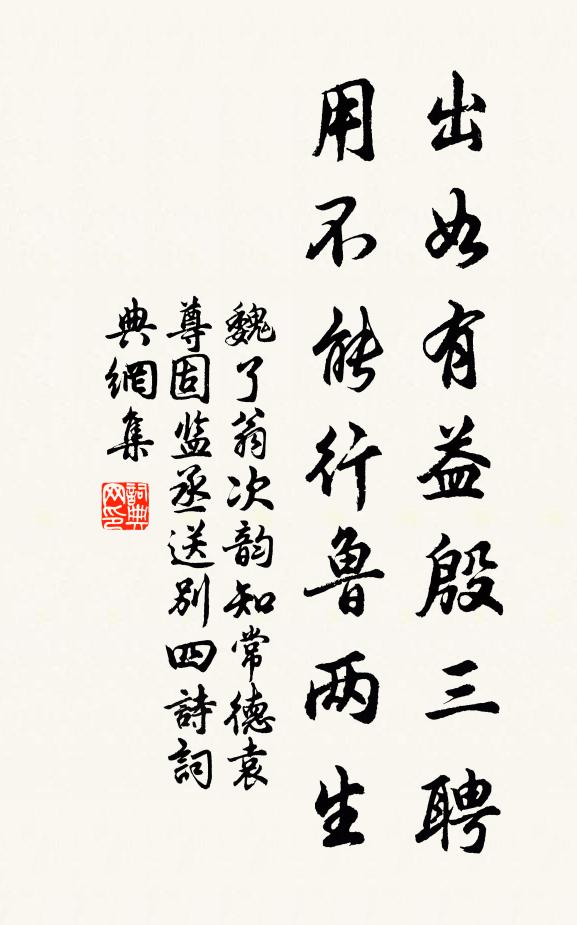 出如有益殷三聘
用不能行鲁两生
魏了翁次韵知常德袁
尊固监丞送别四詩詞
典網集
詞典网印